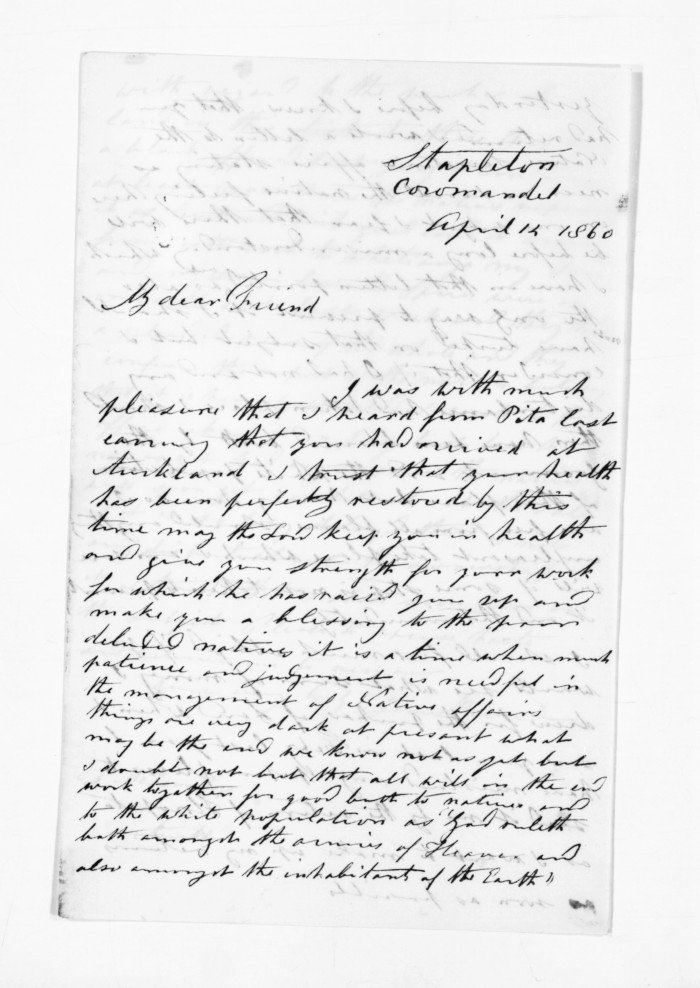 Stapleton
Coromandel
April 12 1860
My dear Friend
I was with much
pleasure that I heard from Pita last
evening that you had arrived at
Auckland I trust that your health
has been perfectly restored by this
time may the Lord keep you in health
and give you strength for your work
for which he has raised you up and
make you a blessing to the poor
deluded natives it is a time when much
patience and judgement is needful in
the management of Native affairs
things are very dark at present what
may be the end we know not as yet but
I doubt not but that all will in the end
work togathers for good both to natives and
to the white population as "God ruleth
both amongst the armies of Heaven and
also amongst the inhabitants of the Earth"